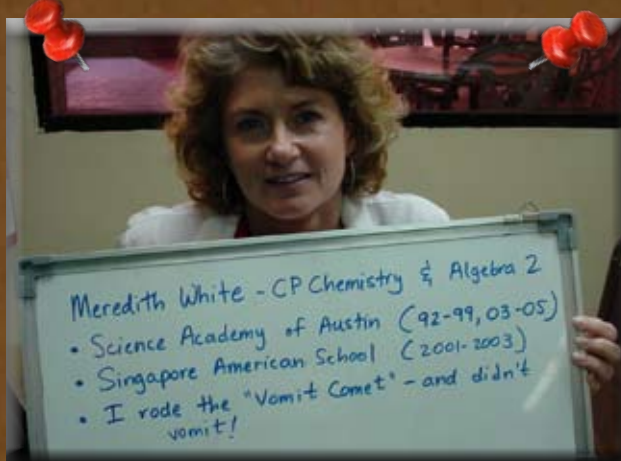 Meredith White - CP Chemistry & Algebra 2
• Science Academy of Austin (92-99, 03-05)
• Singapore American School (2001-2003)
• I rode the "Vomit Comet" - and didn't
vomit!